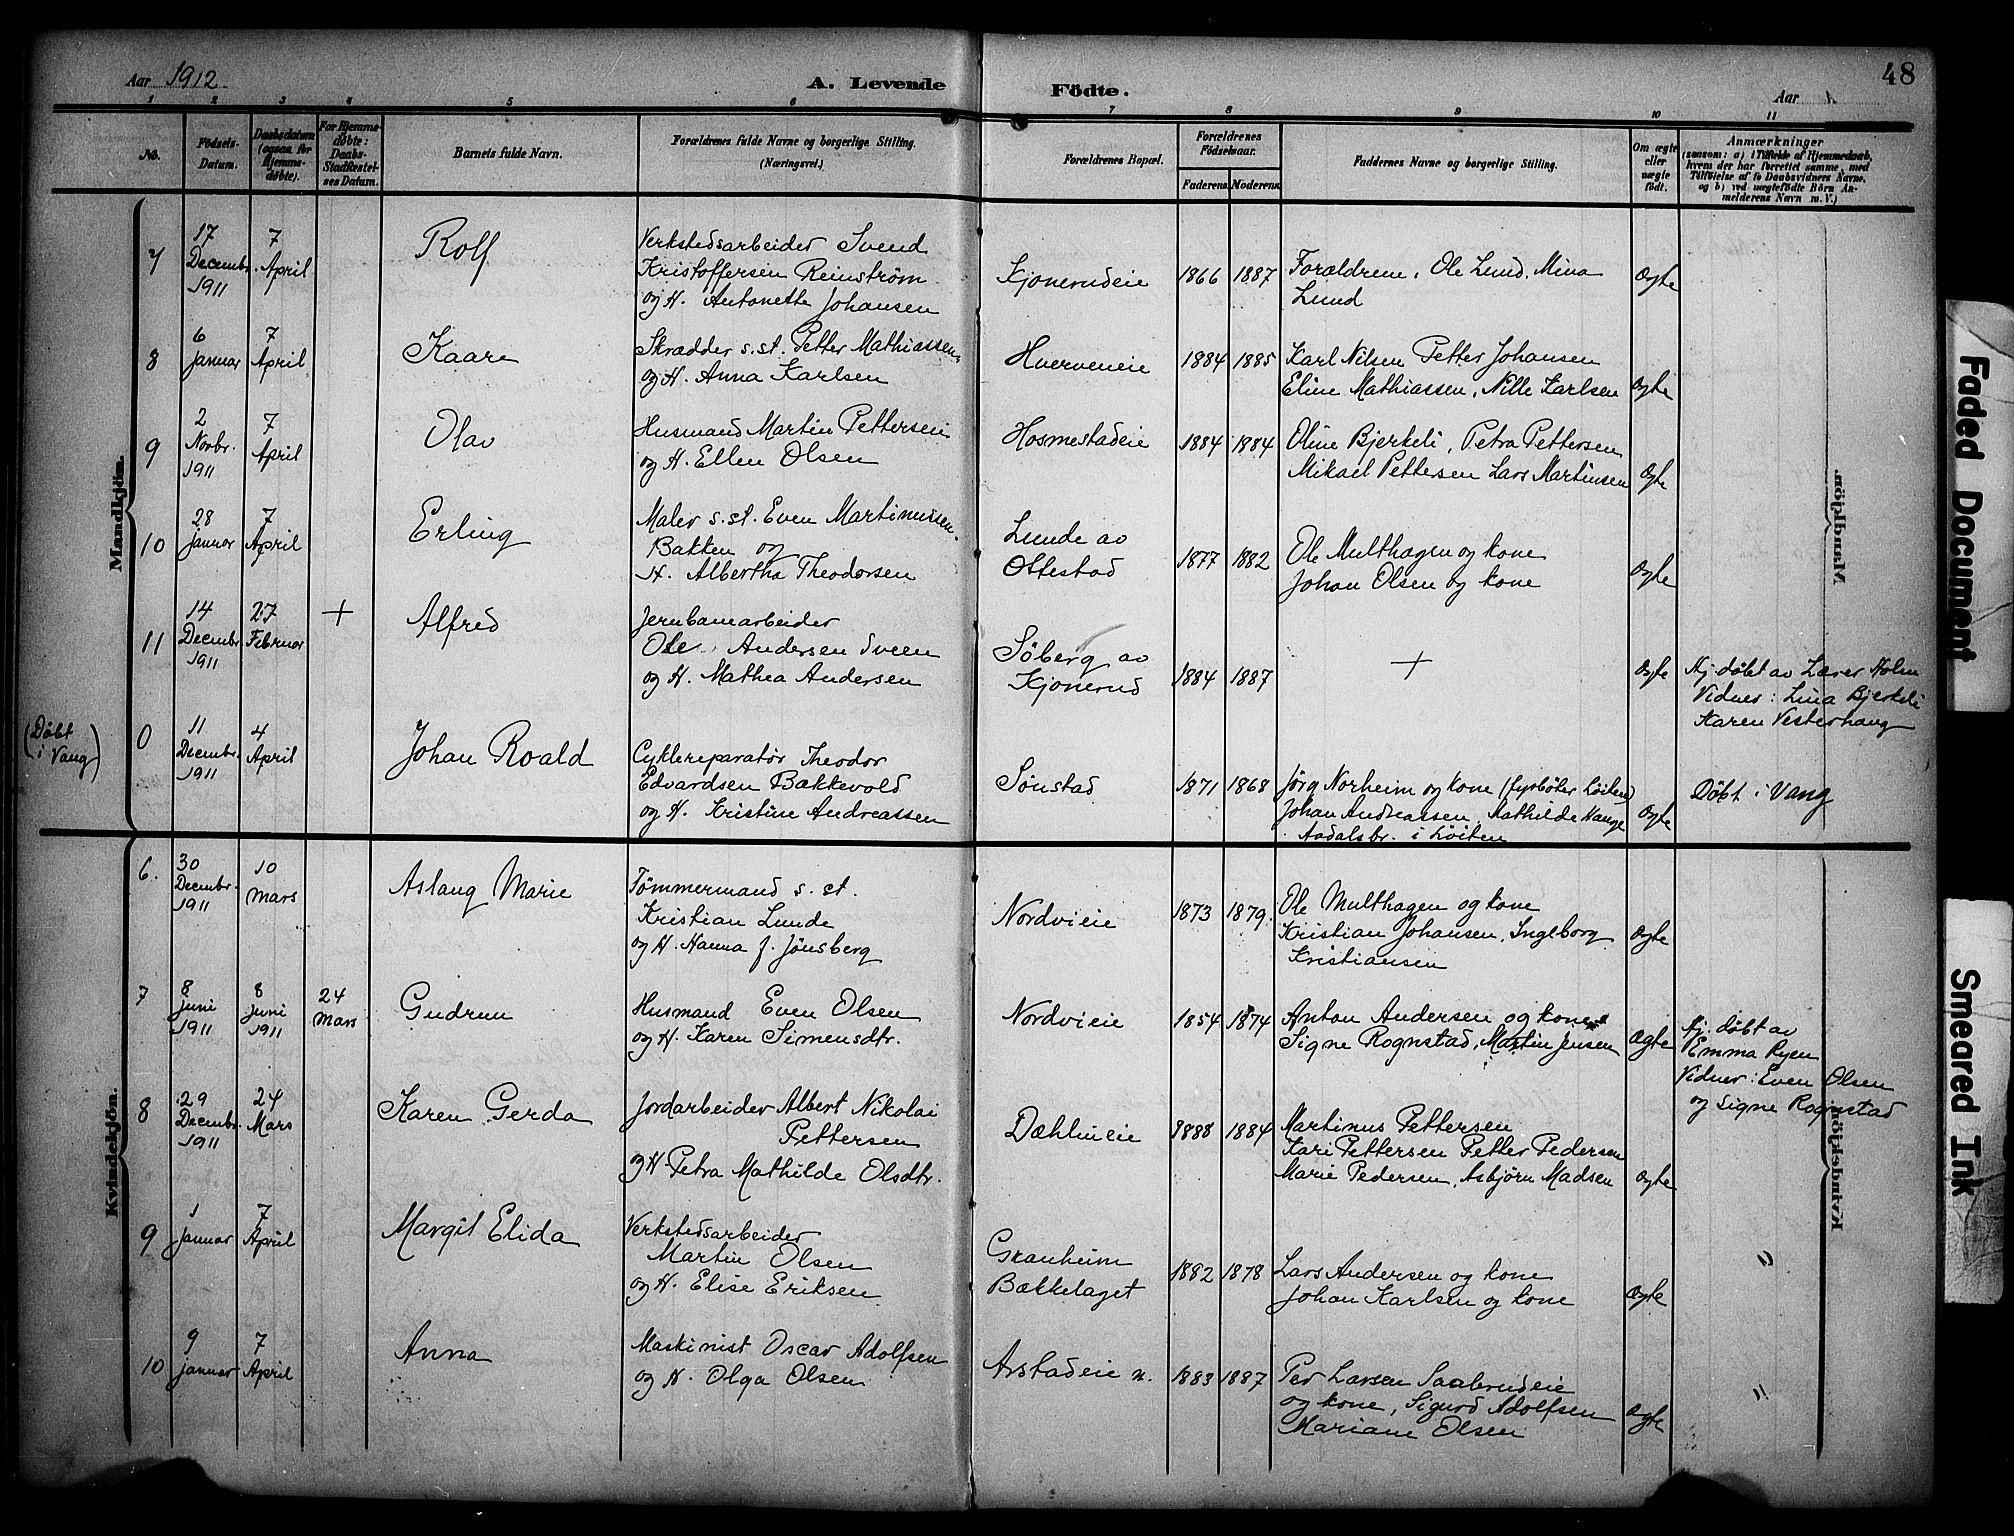 Aar 1912
A. Levende Födte.
Aar
48
1 2 3 4 5 6 7 8 9 10 11
No.
Födsels-Datum.
Daabsdatum (ogsaa for Hjemme-døbte).
For Hjemme-døbte: Daabs-Stadfæstel-ses Datum.
Barnets fulde Navn.
Forældrenes fulde Navne og borgerlige Stilling.
(Næringsvei.)
Forældrenes Bopæl.
Forældrenes Födselsaar.
Faderens. Moderens.
Faddernes Navne og borgerlige Stilling.
Om ægte eller uægte födt.
Anmærkninger
(saasom: a) i Tilfælde af Hjemmedaab, hvem der har forrettet samme, med Tilföielse af to Daabsvidners Navne, og b) ved uægtefödte Börn Anmelderens Navn m. V.)
Mandkjön.
7
17 Decembr. 1911
7 April
Rolf
Verkstedsarbeider Svend
Kristoffersen Reinström
og H. Antonette Johansen
Kjonerudeie
1866 1887
Forældrene, Ole Lund, Mina
Lund
Ægte
8
6 Januar
7 April
Kaare
Skrædder s.st. Petter Mathiassen
og H. Anna Karlsen
Hverveneie
1884 1885
Karl Nilsen Petter Johansen
Eline Mathiassen, Nille Karlsen
Ægte
9
2 Novbr. 1911
7 April
Olav
Husmand Martin Pettersen
og H. Ellen Olsen
Hosmestadeie
1884 1884
Oline Bjerkeli, Petra Pettersen
Mikael Pettersen Lars Martinsen
Ægte
10
28 Januar
7 April
Erling
Maler s.st. Even Martinussen
Bakken og
H. Albertha Theodorsen
Lunde av
Ottestad
1877 1882
Ole Multhagen og kone
Johan Olsen og kone
Ægte
11
14 Decembr 1911
27 Februar
+
Alfred
Jernbanearbeider
Ole Andersen Sveen
og H. Mathea Andersen
Söberg av
Kjonerud
1884 1887
+
Ægte
Hj. døbt av Lærer Holm
Vidner: Lina Bjerkeli
Karen Vesterhaug
(Döbt i Vang)
0
11 Decembr. 1911
4 April
Johan Roald
Cyklereparatør Theodor
Edvardsen Bækkevold
og H. Kristine Andreassen
Sønstad
1871 1868
Jörg Norheim og kone (fyrbøter Løiten)
Johan Andreassen, Mathilde Hauge
Aadalsbr. i Løiten
Ægte
Döbt i Vang
Mandkjön.
Kvindekjön.
6.
30 Decembr. 1911
10 Mars
Aslaug Marie
Tömmermand s. st.
Kristian Lunde
og H. Hanna f. Jönsberg
Nordvieie
1873 1879.
Ole Multhagen og kone
Kristian Johansen, Ingeborg
Kristiansen
Ægte
7
8 Juni 1911
8 Juni 1911
24 Mars
Gudrun
Husmand Even Olsen
og H. Karen Simensdtr.
Nordvieie
1854 1874
Anton Andersen og kone
Signe Rognstad, Martin Jensen
Ægte
Hj. döbt av
Emma Ryen
Vidner: Even Olsen
og Signe Rognstad
8
29 Decembr. 1911
24 Mars
Karen Gerda
Jordarbeider Albert Nikolai
Pettersen
og H. Petra Mathilde Olsdtr.
Dæhlineie
1888 1884
Martinus Pettersen
Kari Pettersen Petter Pedersen
Marie Pedersen, Asbjörn Madsen
Ægte
9
1 Januar
7 April
Margit Elida
Verkstedsarbeider
Martin Olsen
og H. Elise Eriksen
Granheim
Bækkelaget
1882 1878
Lars Andersen og kone
Johan Karlsen og kone
Ægte
"
10
9 Januar
7 April
Anna
Maskinist Oscar Adolfsen
og H. Olga Olsen
Arstadeie n.
1883 1887
Per Larsen Saaberudeie
og kone, Sigurd Adolfsen
Mariane Olsen
Ægte
"
Kvindekjön.
Faded Document
Smeared Ink